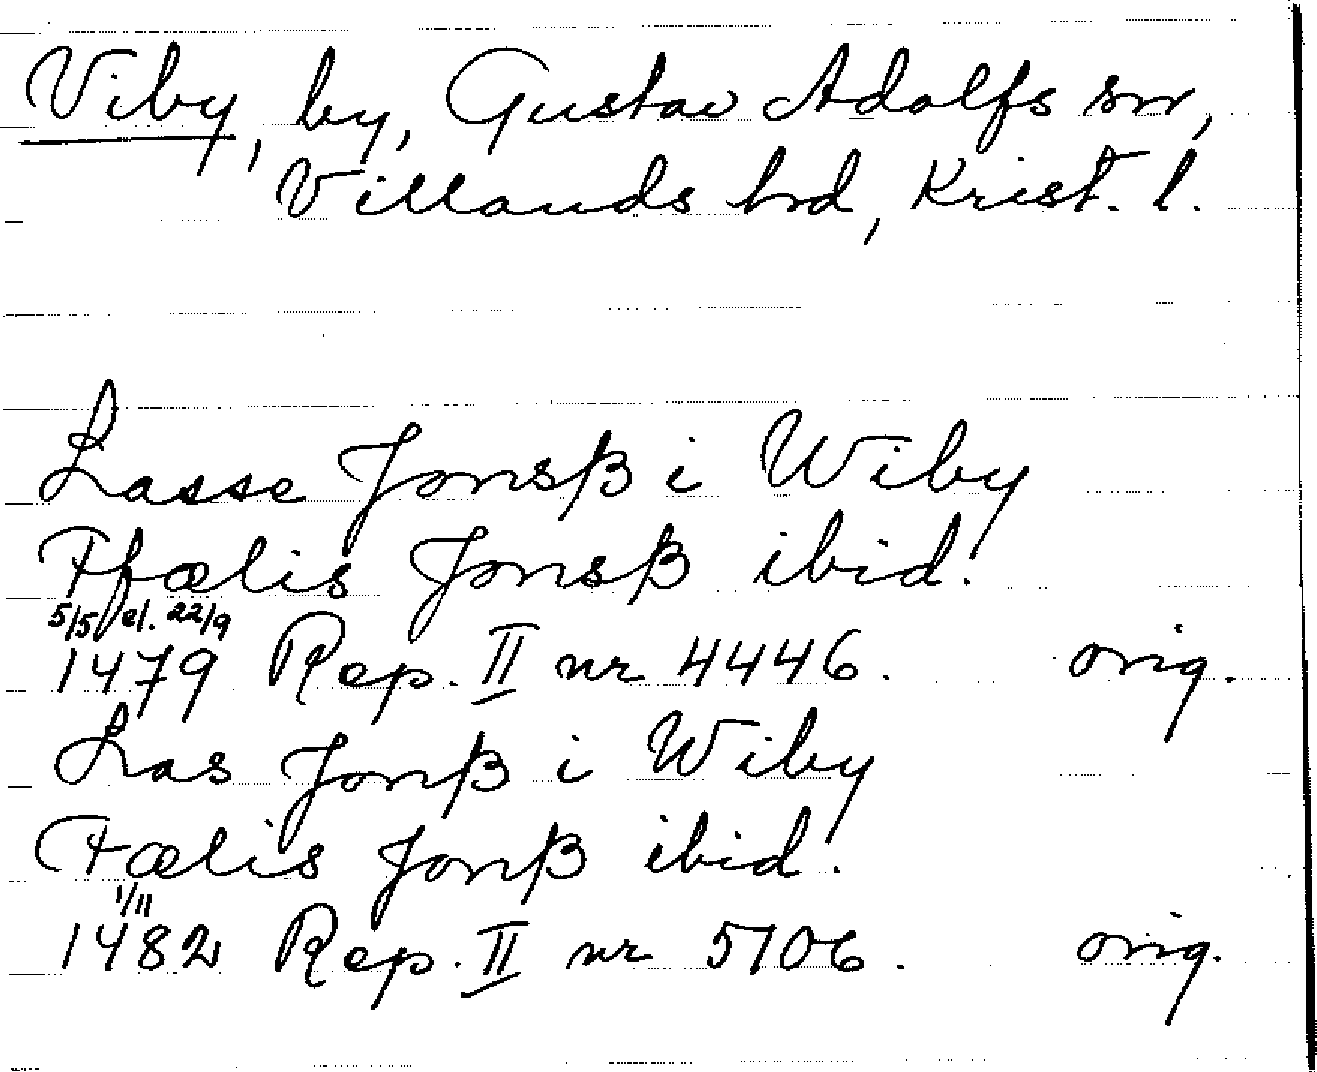 Viby, by, Gustav Adolfs sn,
Villands hd, Krist. l.
Lasse Jonsß i Wiby
Ffælis Jonsß ibid.
5/5 el. 22/9
1479 Rep. II nr 4446. orig.
Las Jonß i Wiby
Fælis Jonß ibid.
1/11
1482 Rep. II nr 5106. orig.